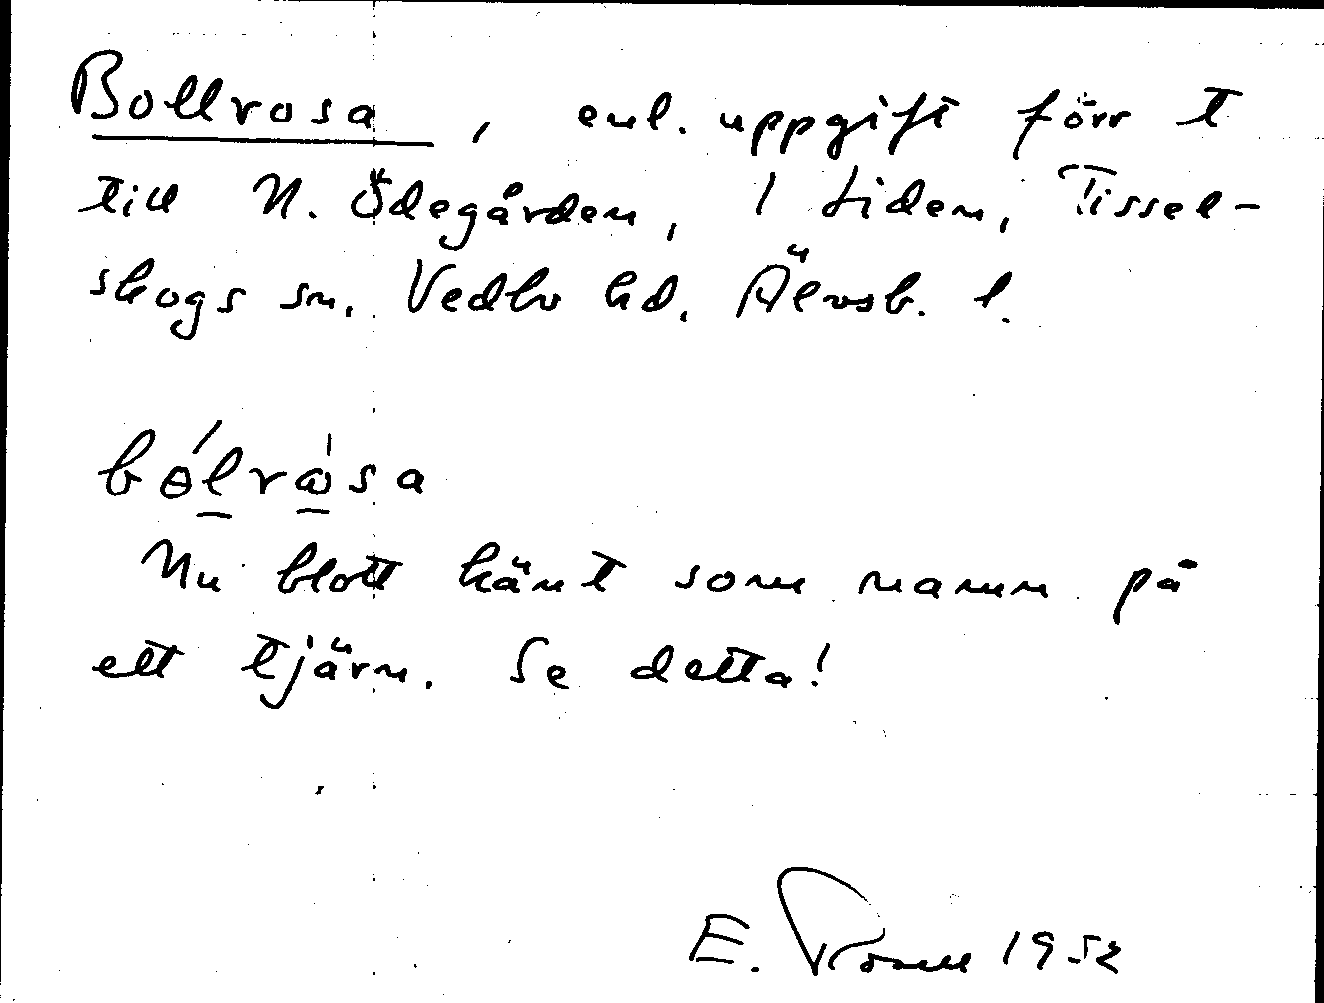 Bollrosa, enl. uppgift förr t
till N. Ödegården, 1 Liden, Tissel-
skogs sn. Vedbo hd. Älvsb. l.
bólròsa
Nu blott känt som namn på
ett tjärn. Se detta!
E. 1952